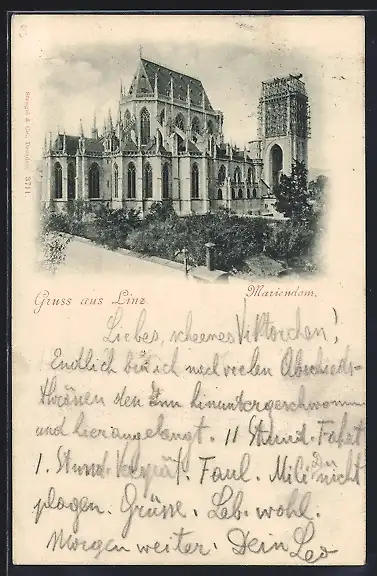 Stengel & Co., Dresden 8711.
Gruss aus Linz
Mariendom.
Liebes, scheenes Viktorchen!
Endlich bin ich nach vielen Abschieds-
thränen den Inn hinuntergeschwommen
und hier angelangt. 11 Stund. Fahrt
1. Stund. Verspät. Faul. Mili Du nicht
plagen. Grüsse. Leb. wohl.
Morgen weiter. Dein Leo